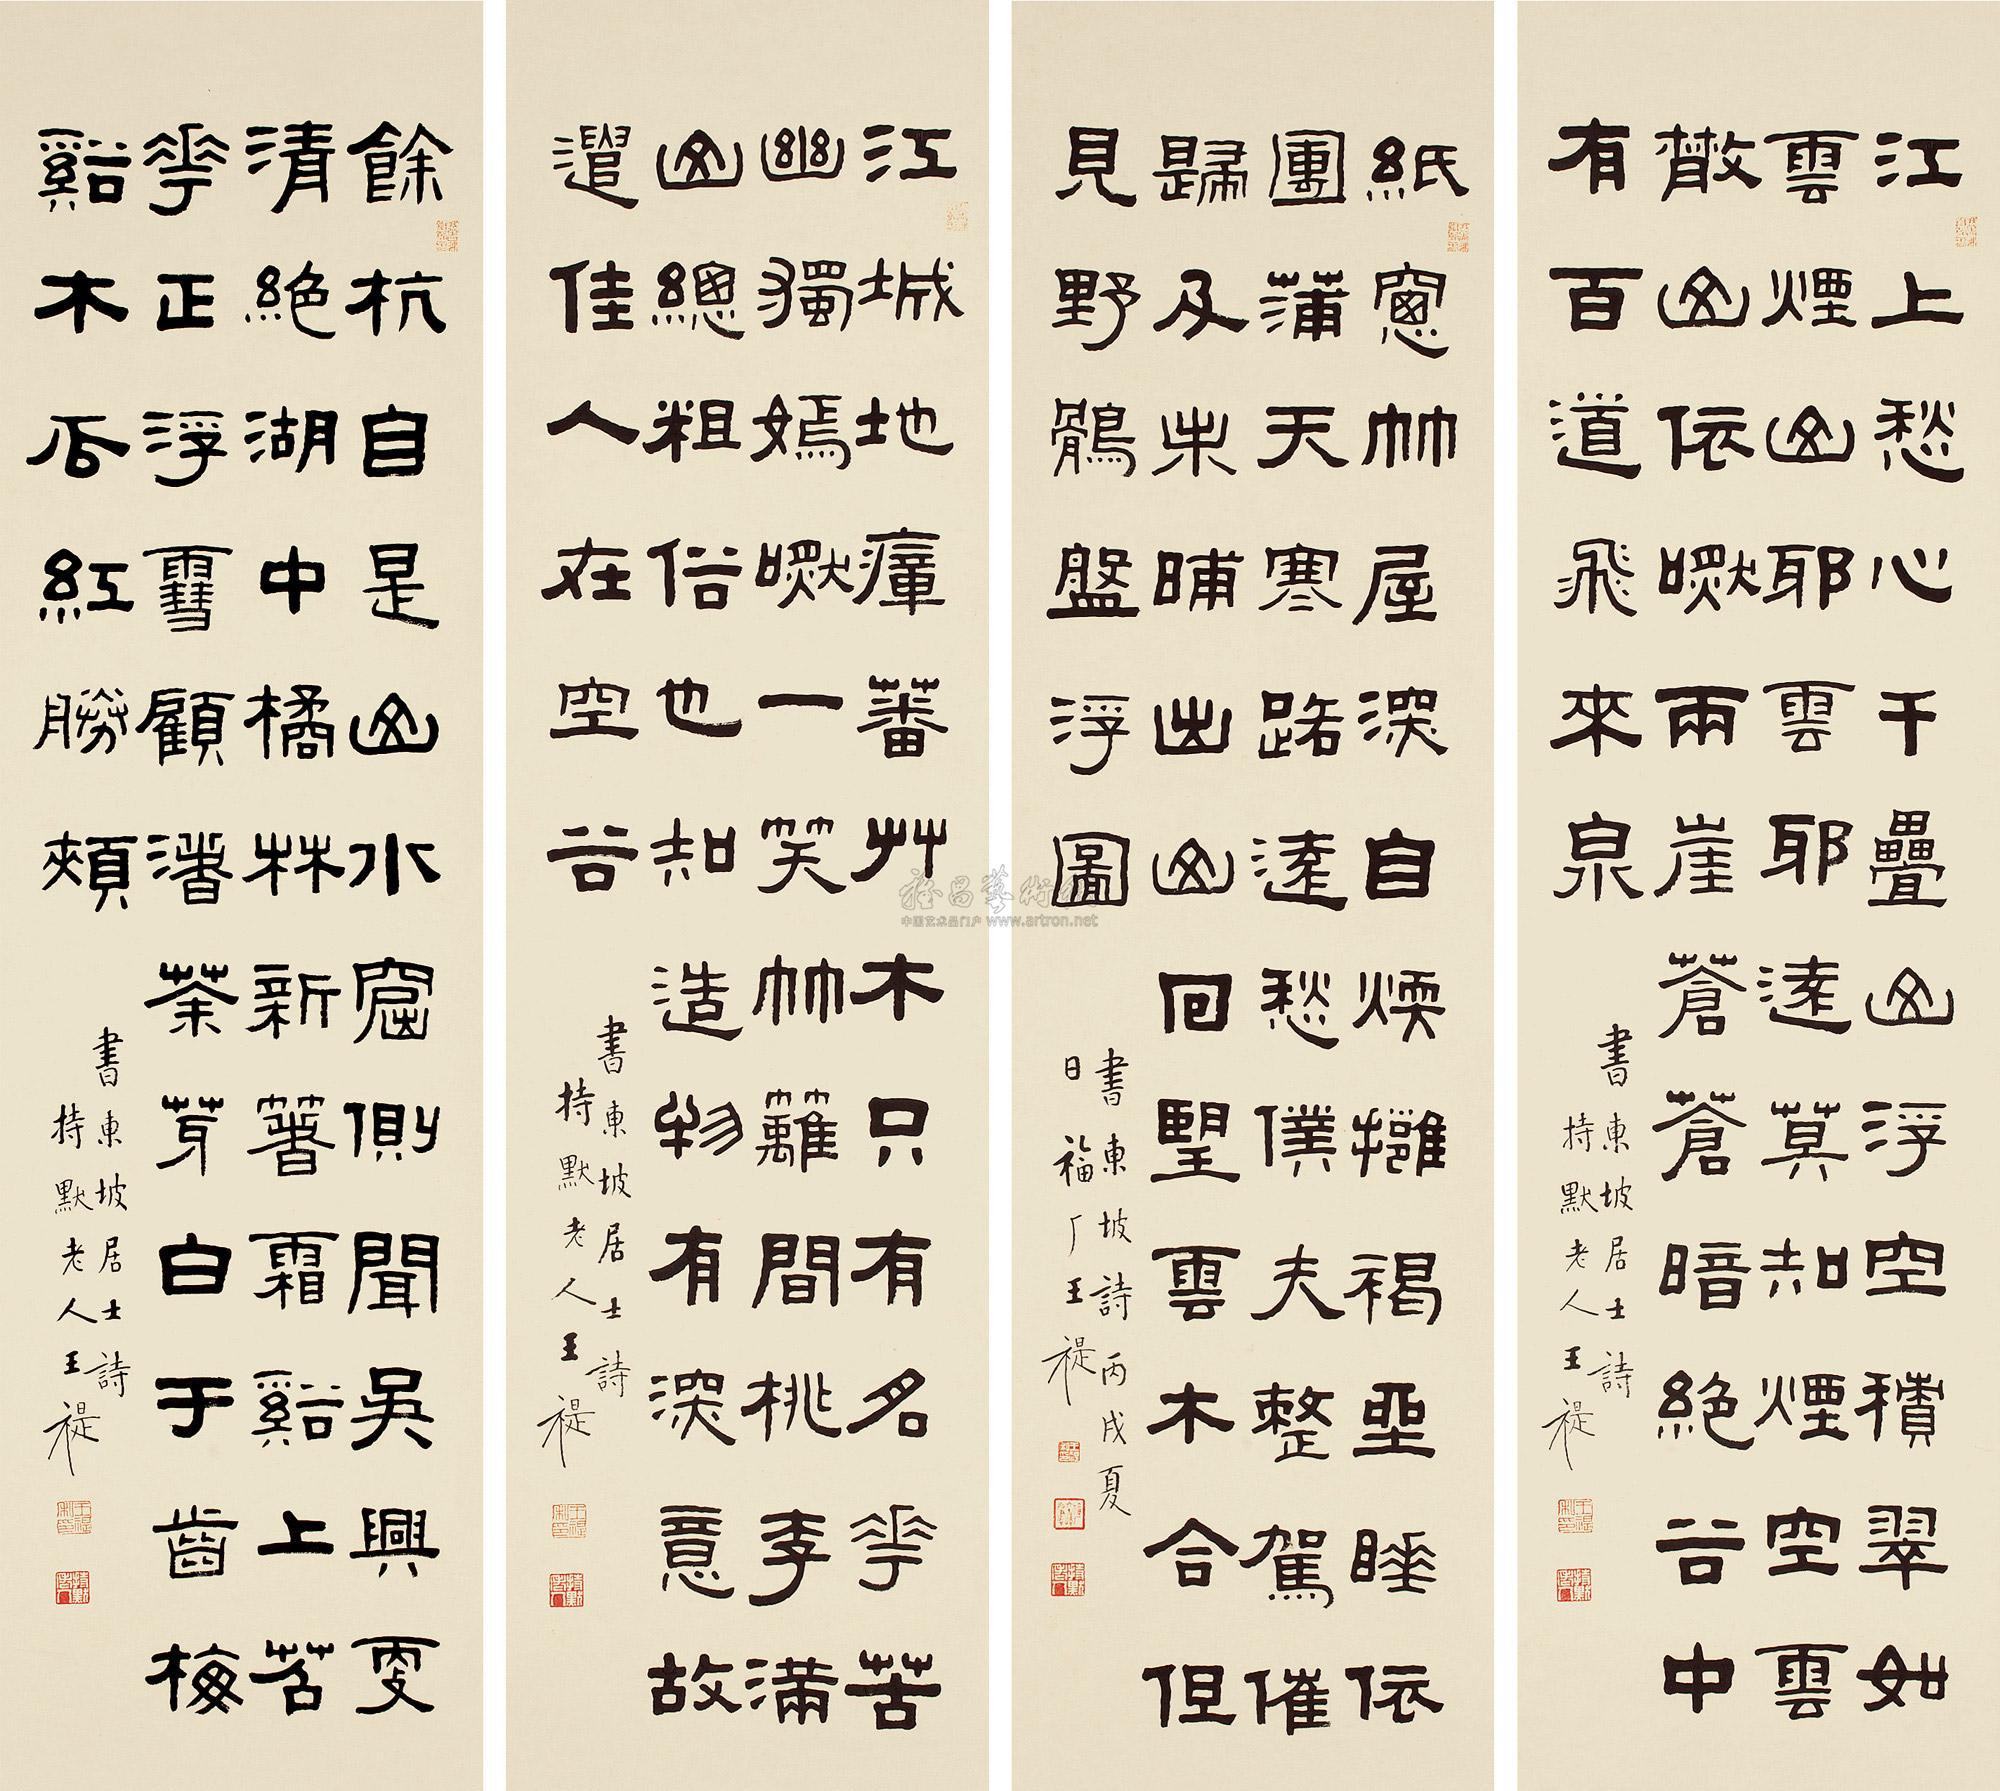 江上愁心千疊山浮空積翠如
雲煙山耶雲耶遠莫知煙空雲
散山依然兩崖蒼蒼暗絕谷中
有百道飛來泉
書東坡居士詩
持默老人王禔
紙窗竹屋深自煖擁褐坐睡依
團蒲天寒路遠愁僕夫整駕催
歸及未晡出山回望雲木合但
見野鶻盤浮圖
書東坡詩丙戌夏
日福厂王禔
江城地瘴蕃艸木只有名花苦
幽獨嫣然一笑竹籬間桃李滿
山總粗俗也知造物有深意故
遣佳人在空谷
書東坡居士詩
持默老人王禔
餘杭自是山水窟側聞吳興更
清絕湖中橘林新著霜谿上苕
花正浮雪顧渚茶芽白于齒梅
谿木瓜紅勝頰
書東坡居士詩
持默老人王禔
雅昌藝術網
中国艺术品门户 www.artron.net